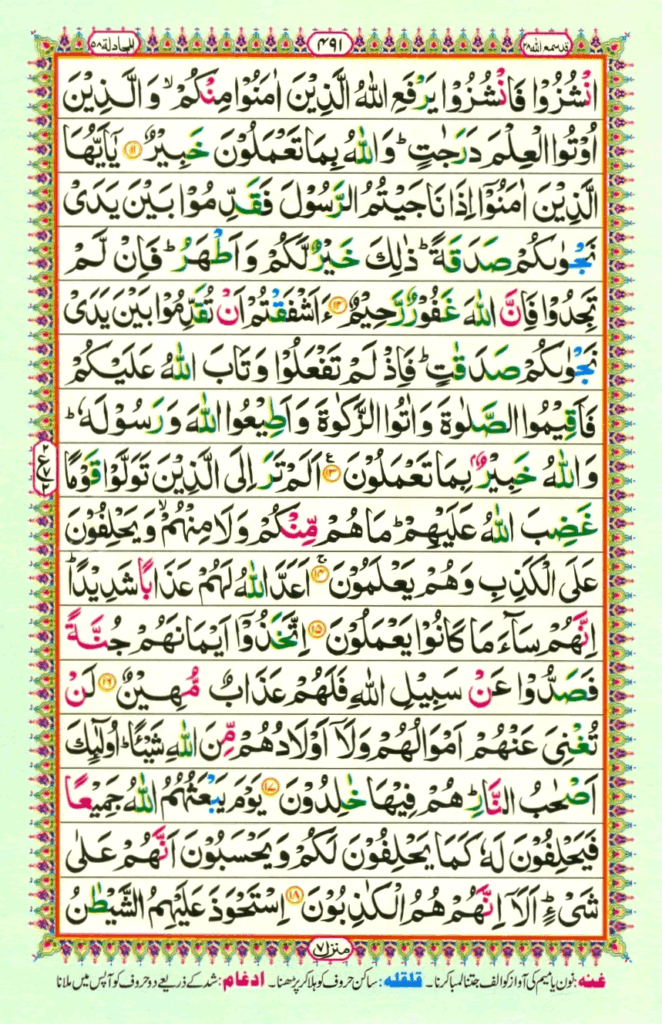 قد سمع الله ٢٨ ٤٩١ المجادلة ٥٨
انْشُزُوْا فَانْشُزُوْا يَرْفَعِ اللّٰهُ الَّذِيْنَ اٰمَنُوْا مِنْكُمْ ۙ وَالَّذِيْنَ
اُوْتُوا الْعِلْمَ دَرَجٰتٍ ؕ وَاللّٰهُ بِمَا تَعْمَلُوْنَ خَبِيْرٌ ﴿۱۱﴾ يٰۤاَيُّهَا
الَّذِيْنَ اٰمَنُوْۤا اِذَا نَاجَيْتُمُ الرَّسُوْلَ فَقَدِّمُوْا بَيْنَ يَدَىْ
نَجْوٰىكُمْ صَدَقَةً ؕ ذٰلِكَ خَيْرٌ لَّكُمْ وَاَطْهَرُ ؕ فَاِنْ لَّمْ
تَجِدُوْا فَاِنَّ اللّٰهَ غَفُوْرٌ رَّحِيْمٌ ﴿۱۲﴾ ءَاَشْفَقْتُمْ اَنْ تُقَدِّمُوْا بَيْنَ يَدَىْ
نَجْوٰىكُمْ صَدَقٰتٍ ؕ فَاِذْ لَمْ تَفْعَلُوْا وَتَابَ اللّٰهُ عَلَيْكُمْ
فَاَقِيْمُوا الصَّلٰوةَ وَاٰتُوا الزَّكٰوةَ وَاَطِيْعُوا اللّٰهَ وَرَسُوْلَهٗ ؕ
وَاللّٰهُ خَبِيْرٌۢ بِمَا تَعْمَلُوْنَ ﴿۱۳﴾ اَلَمْ تَرَ اِلَى الَّذِيْنَ تَوَلَّوْا قَوْمًا
غَضِبَ اللّٰهُ عَلَيْهِمْ ؕ مَا هُمْ مِّنْكُمْ وَلَا مِنْهُمْ ۙ وَيَحْلِفُوْنَ
عَلَى الْكَذِبِ وَهُمْ يَعْلَمُوْنَ ۚ ﴿۱۴﴾ اَعَدَّ اللّٰهُ لَهُمْ عَذَابًا شَدِيْدًا ؕ
اِنَّهُمْ سَآءَ مَا كَانُوْا يَعْمَلُوْنَ ﴿۱۵﴾ اِتَّخَذُوْۤا اَيْمَانَهُمْ جُنَّةً
فَصَدُّوْا عَنْ سَبِيْلِ اللّٰهِ فَلَهُمْ عَذَابٌ مُّهِيْنٌ ﴿۱۶﴾ لَنْ
تُغْنِىَ عَنْهُمْ اَمْوَالُهُمْ وَلَاۤ اَوْلَادُهُمْ مِّنَ اللّٰهِ شَيْـًٔا ؕ اُولٰٓئِكَ
اَصْحٰبُ النَّارِ ؕ هُمْ فِيْهَا خٰلِدُوْنَ ﴿۱۷﴾ يَوْمَ يَبْعَثُهُمُ اللّٰهُ جَمِيْعًا
فَيَحْلِفُوْنَ لَهٗ كَمَا يَحْلِفُوْنَ لَكُمْ وَيَحْسَبُوْنَ اَنَّهُمْ عَلٰى
شَىْءٍ ؕ اَلَاۤ اِنَّهُمْ هُمُ الْكٰذِبُوْنَ ﴿۱۸﴾ اِسْتَحْوَذَ عَلَيْهِمُ الشَّيْطٰنُ
منزل ٧
غنه: نون یا میم کی آواز کو الف جتنا لمبا کرنا۔ قلقله: ساکن حروف کو ہلا کر پڑھنا۔ ادغام: شد کے ذریعے دو حروف کو آپس میں ملانا